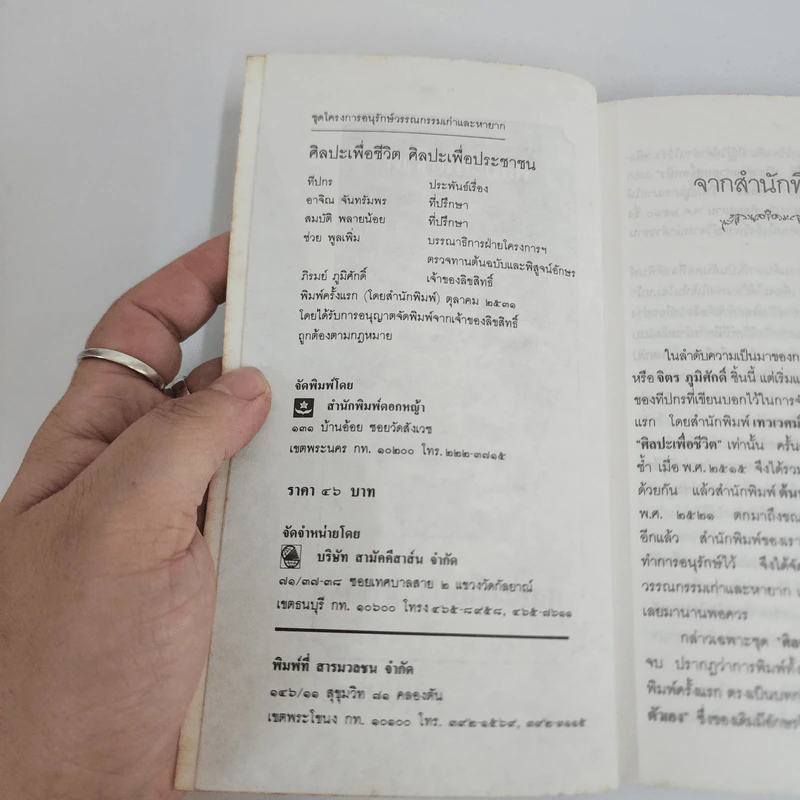 ชุดโครงการอนุรักษ์วรรณกรรมเก่าและหายาก
ศิลปะเพื่อชีวิต ศิลปะเพื่อประชาชน
ทีปกร ประพันธ์เรื่อง
อาจิณ จันทรัมพร ที่ปรึกษา
สมบัติ พลายน้อย ที่ปรึกษา
ช่วย พูลเพิ่ม บรรณาธิการฝ่ายโครงการฯ
ตรวจทานต้นฉบับและพิสูจน์อักษร
ภิรมย์ ภูมิศักดิ์ เจ้าของลิขสิทธิ์
พิมพ์ครั้งแรก (โดยสำนักพิมพ์) ตุลาคม ๒๕๓๑
โดยได้รับการอนุญาตจัดพิมพ์จากเจ้าของลิขสิทธิ์
ถูกต้องตามกฎหมาย
จัดพิมพ์โดย
สำนักพิมพ์ดอกหญ้า
๑๓๑ บ้านอ้อย ซอยวัดสังเวช
เขตพระนคร กท. ๑๐๒๐๐ โทร. ๒๒๒-๓๗๑๕
ราคา ๔๖ บาท
จัดจำหน่ายโดย
บริษัท สามัคคีสาส์น จำกัด
๗๑/๓๗-๓๘ ซอยเทศบาลสาย ๒ แขวงวัดกัลยาณ์
เขตธนบุรี กท. ๑๐๖๐๐ โทรง ๔๖๕-๘๙๕๘, ๔๖๕-๘๖๑๑
พิมพ์ที่ สารมวลชน จำกัด
๑๔๖/๑๑ สุขุมวิท ๘๑ คลองตัน
เขตพระโขนง กท. ๑๐๑๐๐ โทร.
จากสำนักพิ
ในลำดับความเป็นมาของก
หรือ จิตร ภูมิศักดิ์ ชิ้นนี้ แต่เริ่มแ
ของทีปกรที่เขียนบอกไว้ในการจั
แรก โดยสำนักพิมพ์ เทวเวศม์
"ศิลปะเพื่อชีวิต" เท่านั้น ครั้น
ซ้ำ เมื่อ พ.ศ. ๒๕๑๕ จึงได้รวม
ด้วยกัน แล้วสำนักพิมพ์ ต้น
พ.ศ. ๒๕๒๑ ตกมาถึงขณ
อีกแล้ว สำนักพิมพ์ของเรา
ทำการอนุรักษ์ไว้ จึงได้จัด
วรรณกรรมเก่าและหายาก
เลยมานานพอควร
กล่าวเฉพาะชุด "ศิล
จบ ปรากฏว่าการพิมพ์ทั้ง
พิมพ์ครั้งแรก ตรงเป็นบท
ตัวเอง" ซึ่งของเดิมมีอักษร